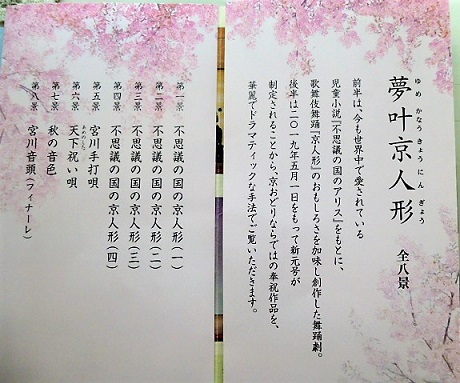 夢叶京人形 全八景
ゆめ かなう きょう にん ぎょう
前半は、今も世界中で愛されている
児童小説『不思議の国のアリス』をもとに、
歌舞伎舞踊『京人形』のおもしろさを加味し創作した舞踊劇。
後半は二〇一九年五月一日をもって新元号が
制定されることから、京おどりならではの奉祝作品を、
華麗でドラマティックな手法でご覧いただきます。
第一景 不思議の国の京人形(一)
第二景 不思議の国の京人形(二)
第三景 不思議の国の京人形(三)
第四景 不思議の国の京人形(四)
第五景 宮川手打唄
第六景 天下祝い唄
第七景 秋の音色
第八景 宮川音頭(フィナーレ)